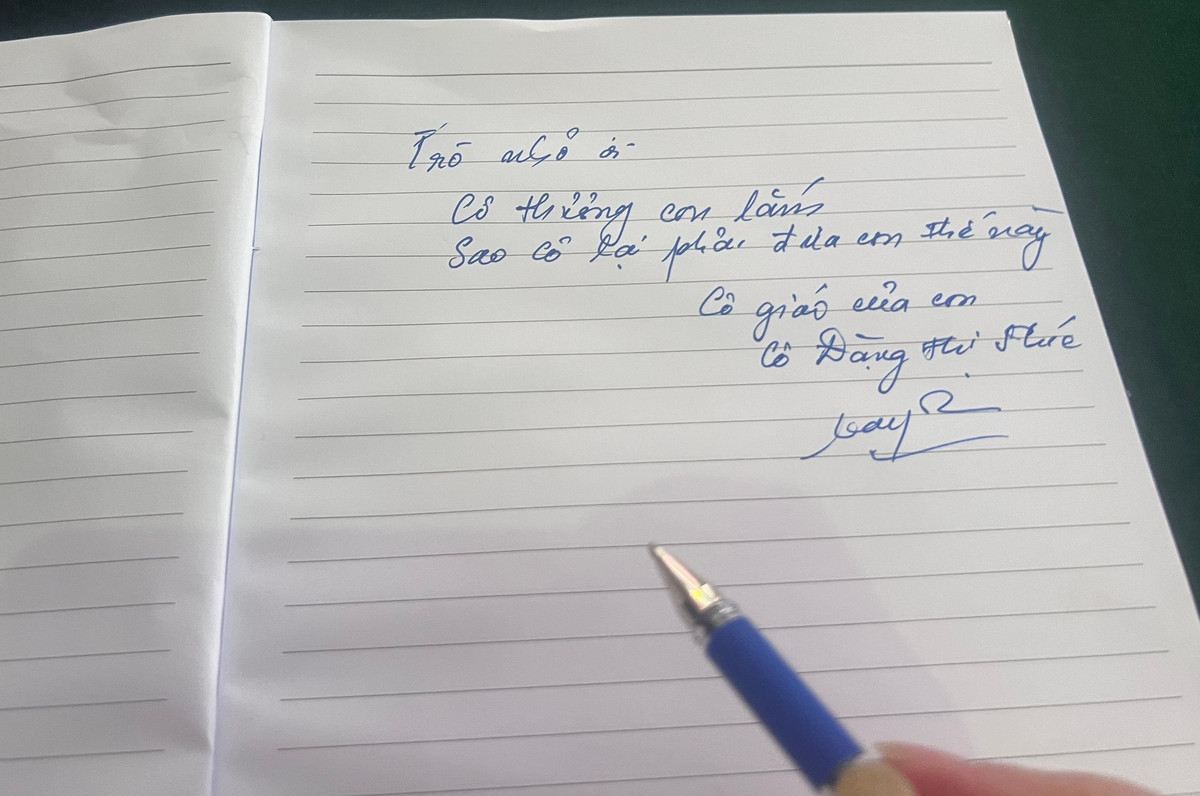 Trò nhỏ ơi
Cô thương con lắm
Sao cô lại phải đưa con thế này
Cô giáo của con
Cô Đặng Thị